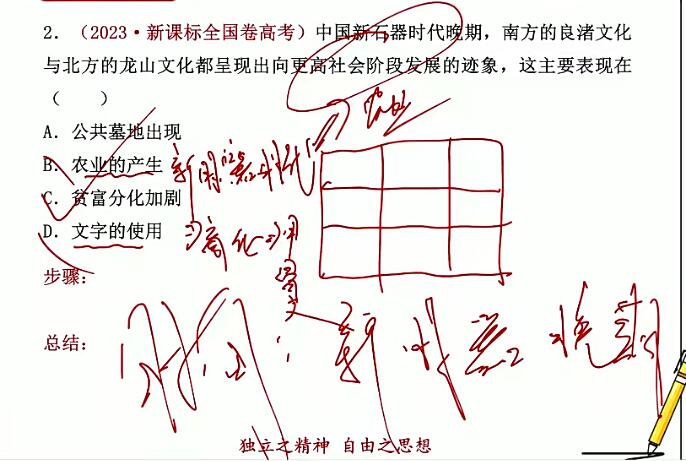 2. （2023·新课标全国卷高考）中国新石器时代晚期，南方的良渚文化
与北方的龙山文化都呈现出向更高社会阶段发展的迹象，这主要表现在
（　　）
A. 公共墓地出现
B. 农业的产生
C. 贫富分化加剧
D. 文字的使用
步骤：
总结：
时间：新时器晚期
独立之精神 自由之思想